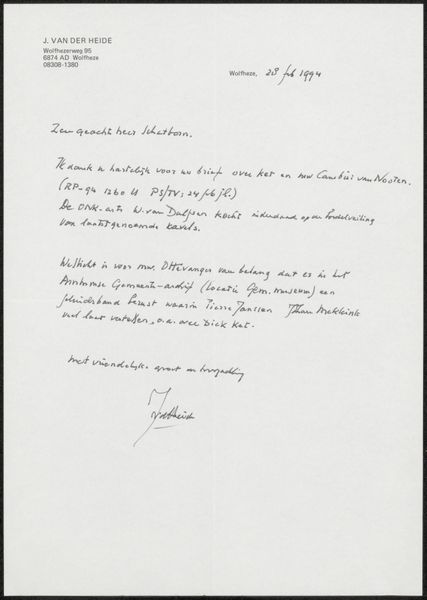 J. VAN DER HEIDE
Wolfhezerweg 95
6874 AD Wolfheze
08308-1380
Wolfheze, 28 feb 1994
Zeer geachte heer Schatborn.
Ik dank u hartelijk voor uw brief over Ket en mw Cambier van Nooten.
(RP-94 1260 U PS/TV; 24 feb jl.)
De W. van Dalfsen kocht inderdaad op de
van laatstgenoemde kavels.
Wellicht is voor mw. Ottevanger van belang dat er in het
Arnhemse Gemeente-archief (locatie Gem. museum) een
geluidsband berust waarin Pierre Janssen Johan Mekkink
veel laat vertellen, o.a. over Dick Ket.
met vriendelijke groet en hoogachting